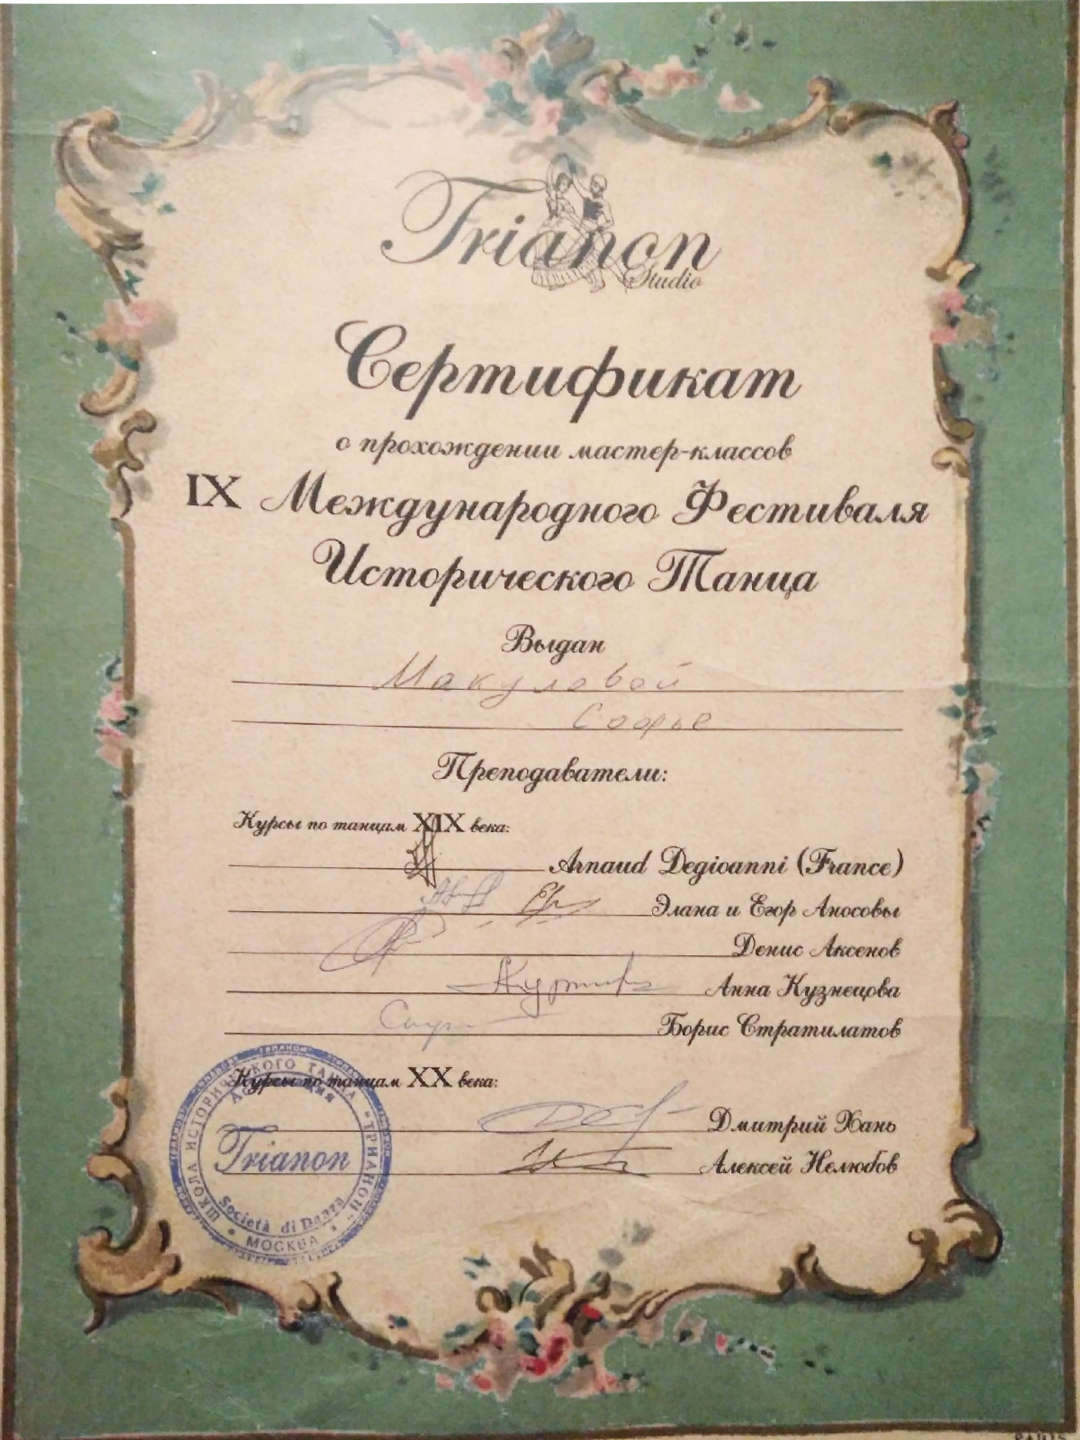 Trianon
Studio
Сертификат
о прохождении мастер-классов
IX Международного Фестиваля
Исторического Танца
Выдан
Макуловой
Софье
Преподаватели:
Курсы по танцам XIX века:
Arnaud Degioanni (France)
Элана и Егор Аносовы
Денис Аксенов
Анна Кузнецова
Борис Стратилатов
Курсы по танцам XX века:
Дмитрий Хань
Алексей Нелюбов
ШКОЛА ИСТОРИЧЕСКОГО ТАНЦА "ТРИАНОН"
Trianon
Società di Danza
МОСКВА
PARIS